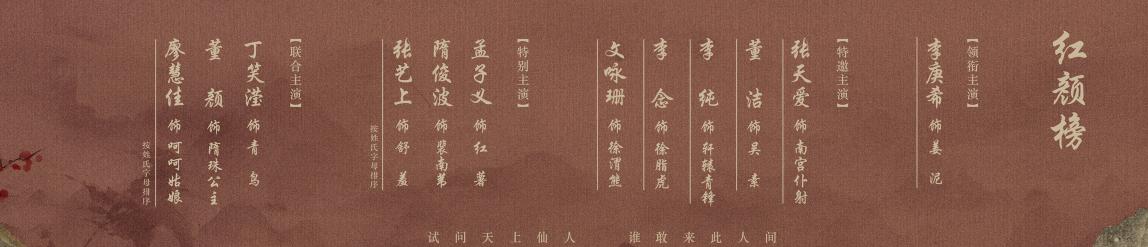 红颜榜
【领衔主演】
李庚希 饰 姜泥
【特邀主演】
张天爱 饰 南宫仆射
董洁 饰 吴素
李纯 饰 轩辕青锋
李念 饰 徐脂虎
文咏珊 饰 徐渭熊
【特别主演】
孟子义 饰 红薯
隋俊波 饰 裴南苇
张艺上 饰 舒羞
按姓氏字母排序
【联合主演】
丁笑滢 饰 青鸟
董颜 饰 隋珠公主
廖慧佳 饰 呵呵姑娘
按姓氏字母排序
试问天上仙人 谁敢来此人间